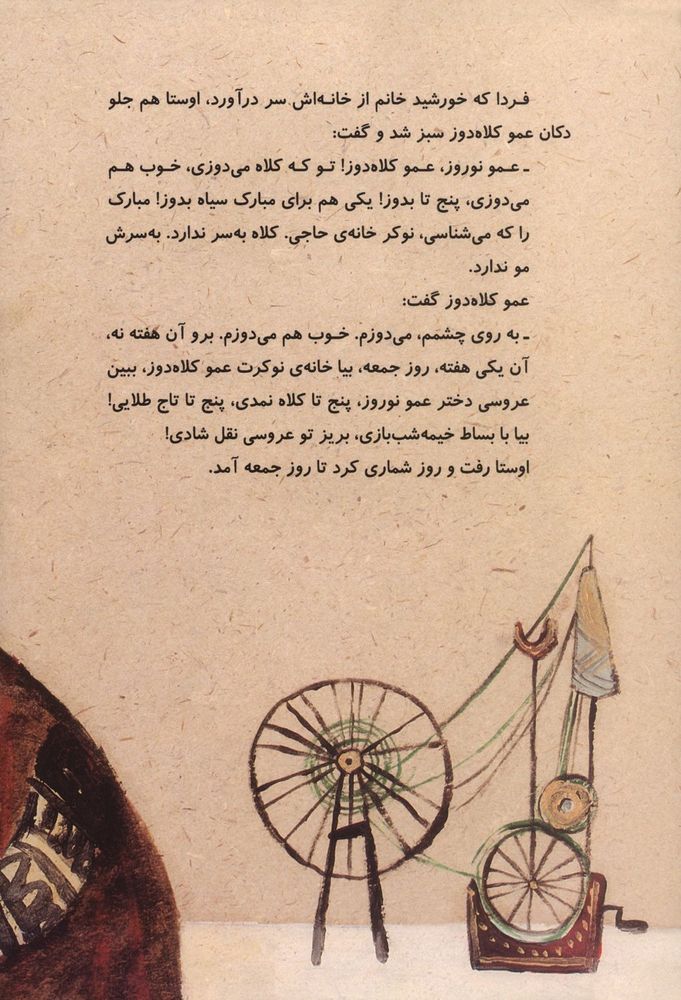 فردا که خورشید خانم از خانه‌اش سر درآورد، اوستا هم جلو
دکان عمو کلاه‌دوز سبز شد و گفت:
ـ عمو نوروز، عمو کلاه‌دوز! تو که کلاه می‌دوزی، خوب هم
می‌دوزی، پنج تا بدوز! یکی هم برای مبارک سیاه بدوز! مبارک
را که می‌شناسی، نوکر خانه‌ی حاجی. کلاه به‌سر ندارد. به‌سرش
مو ندارد.
عمو کلاه‌دوز گفت:
ـ به روی چشمم، می‌دوزم. خوب هم می‌دوزم. برو آن هفته نه،
آن یکی هفته، روز جمعه، بیا خانه‌ی نوکرت عمو کلاه‌دوز، ببین
عروسی دختر عمو نوروز، پنج تا کلاه نمدی، پنج تا تاج طلایی!
بیا با بساط خیمه‌شب‌بازی، بریز تو عروسی نقل شادی!
اوستا رفت و روز شماری کرد تا روز جمعه آمد.